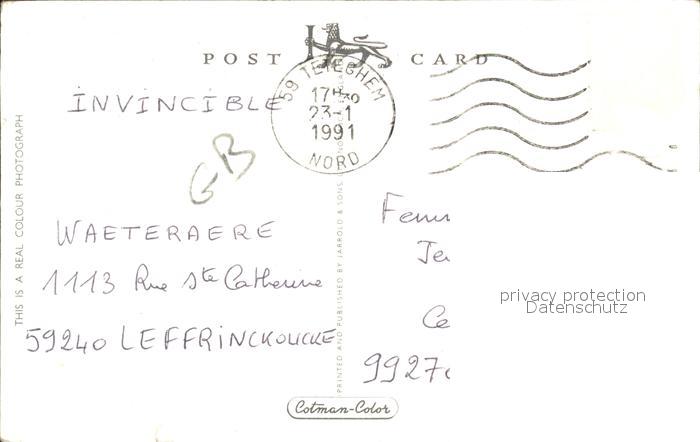 POST CARD
59 TETEGHEM
17H30
23-1
1991
NORD
INVINCIBLE
GB
WAETERAERE
1113 Rue Ste Catherine
59240 LEFFRINCKOUCKE
THIS IS A REAL COLOUR PHOTOGRAPH
PRINTED AND PUBLISHED BY JARROLD & SONS
Ce
9927
privacy protection
Datenschutz
Cotman-Color